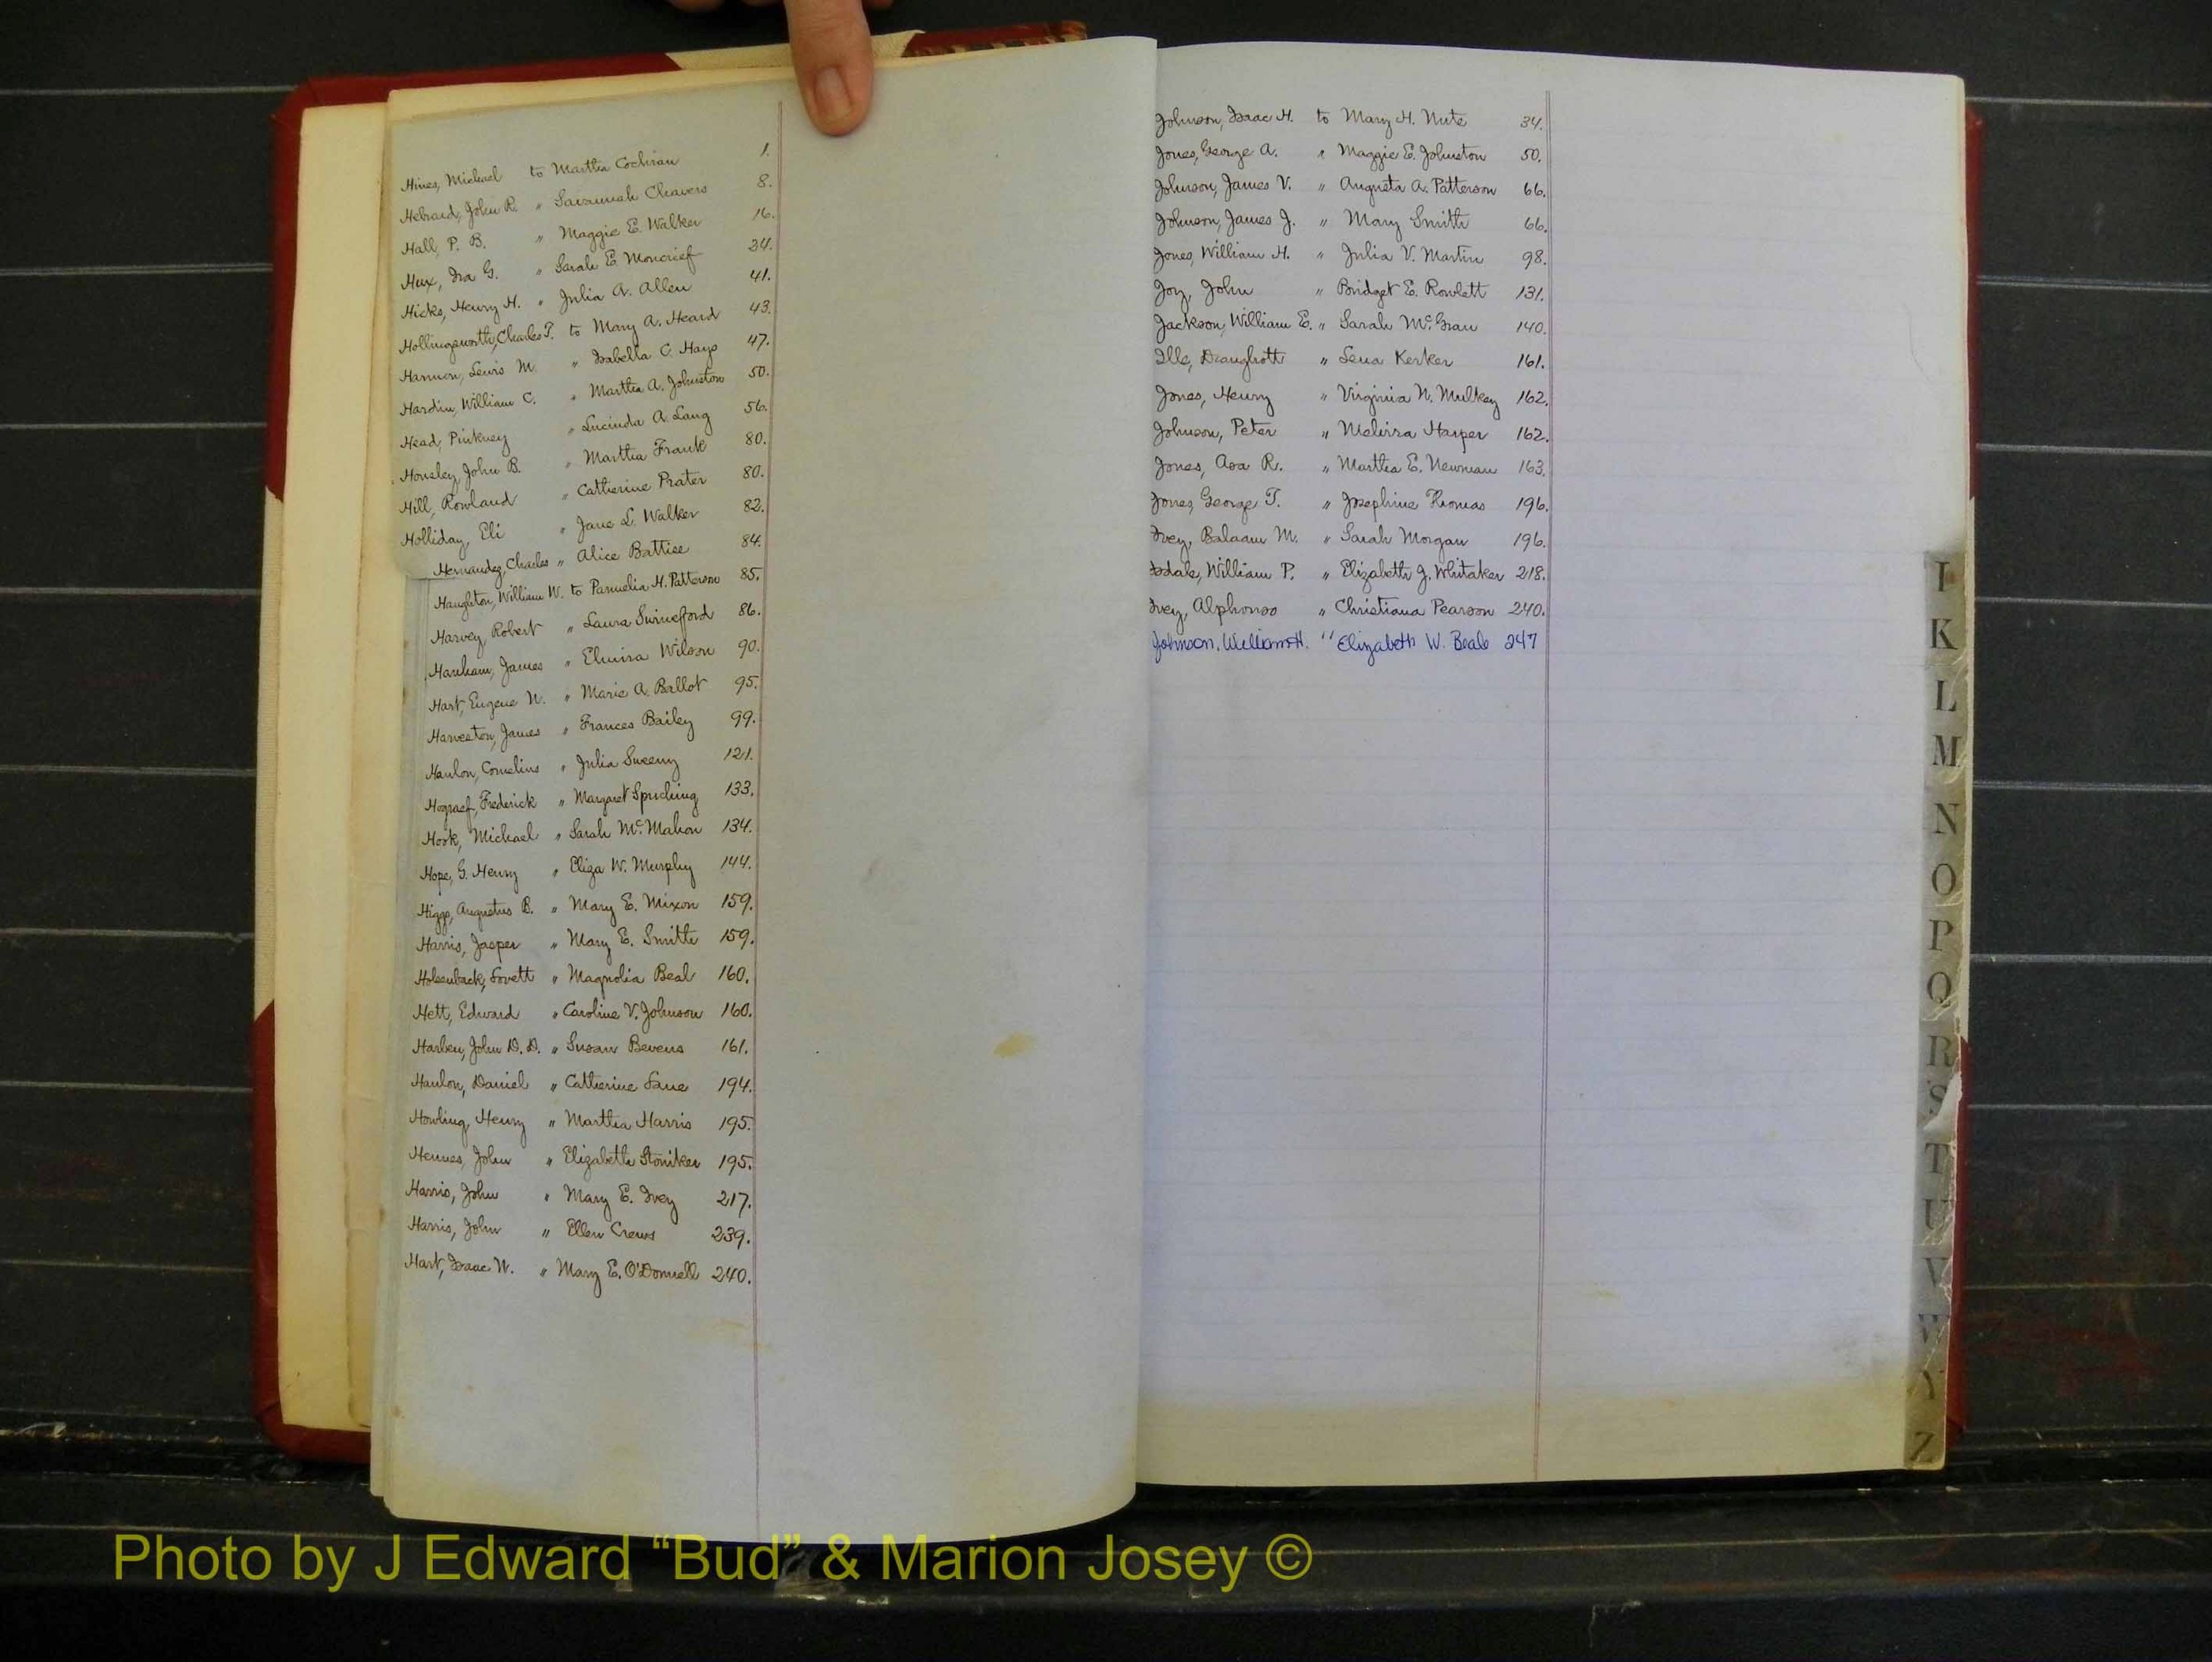 Hines, Michael to Martha Cochran 1.
Hebrard, John R. " Savannah Chavers 8.
Hall, P. B. " Maggie E. Walker 16.
Hux, Ira G. " Sarah E. Moncrief 34.
Hicks, Henry H. " Julia A. Allen 41.
Hollingsworth, Charles T. to Mary A. Heard 43.
Hannon, Lewis M. " Isabella C. Hays 47.
Hardin, William C. " Martha A. Johnston 50.
Head, Pinkney " Lucinda A. Lang 56.
Housley, John B. " Martha Frank 80.
Hill, Rowland " Catherine Prater 80.
Holliday, Eli " Jane L. Walker 82.
Hernandez, Charles " Alice Battise 84.
Haughton, William W. to Pamelia H. Patterson 85.
Harvey, Robert " Laura Swineford 86.
Hanham, James " Elmira Wilson 90.
Hart, Eugene W. " Marie A. Ballot 95.
Harveston, James " Frances Bailey 99.
Hanlon, Cornelius " Julia Sweeny 121.
Hograef, Frederick " Margaret 133.
Hook, Michael " Sarah McMahon 134.
Hope, G. Henry " Eliza W. Murphy 144.
Higgs, Augustus B. " Mary E. Mixon 159.
Harris, Jasper " Mary E. Smith 159.
Holsenback, Lovett " Magnolia Beal 160.
Hett, Edward " Caroline V. Johnson 160.
Harben, John D. D. " Susan Bevens 161.
Hanlon, Daniel " Catherine Lane 194.
Howling, Henry " Martha Harris 195.
Hennes, John " Elizabeth Stoniker 195.
Harris, John " Mary E. Ivey 217.
Harris, John " Ellen Crews 239.
Hart, Isaac W. " Mary E. O'Donnell 240.
Johnson, Isaac H. to Mary H. Nute 34.
Jones, George A. " Maggie E. Johnston 50.
Johnson, James V. " Augusta A. Patterson 66.
Johnson, James J. " Mary Smith 66.
Jones, William H. " Julia V. Martin 98.
Joy, John " Bridget E. Rowlett 131.
Jackson, William E. " Sarah McGrau 140.
Ille, Draughott " Lena Kerker 161.
Jones, Henry " Virginia N. Mulkey 162.
Johnson, Peter " Melvira Harper 162.
Jones, Asa R. " Martha E. Newman 163.
Jones, George T. " Josephine Thomas 196.
Ivey, Balaam M. " Sarah Morgan 196.
Isdale, William P. " Elizabeth J. Whitaker 218.
Ivey, Alphonso " Christiana Pearson 240.
Johnson, William H. " Elizabeth W. Beale 247
I
K
L
M
N
O
P
Q
R
S
T
U
V
W
Y
Z
Photo by J Edward “Bud” & Marion Josey ©